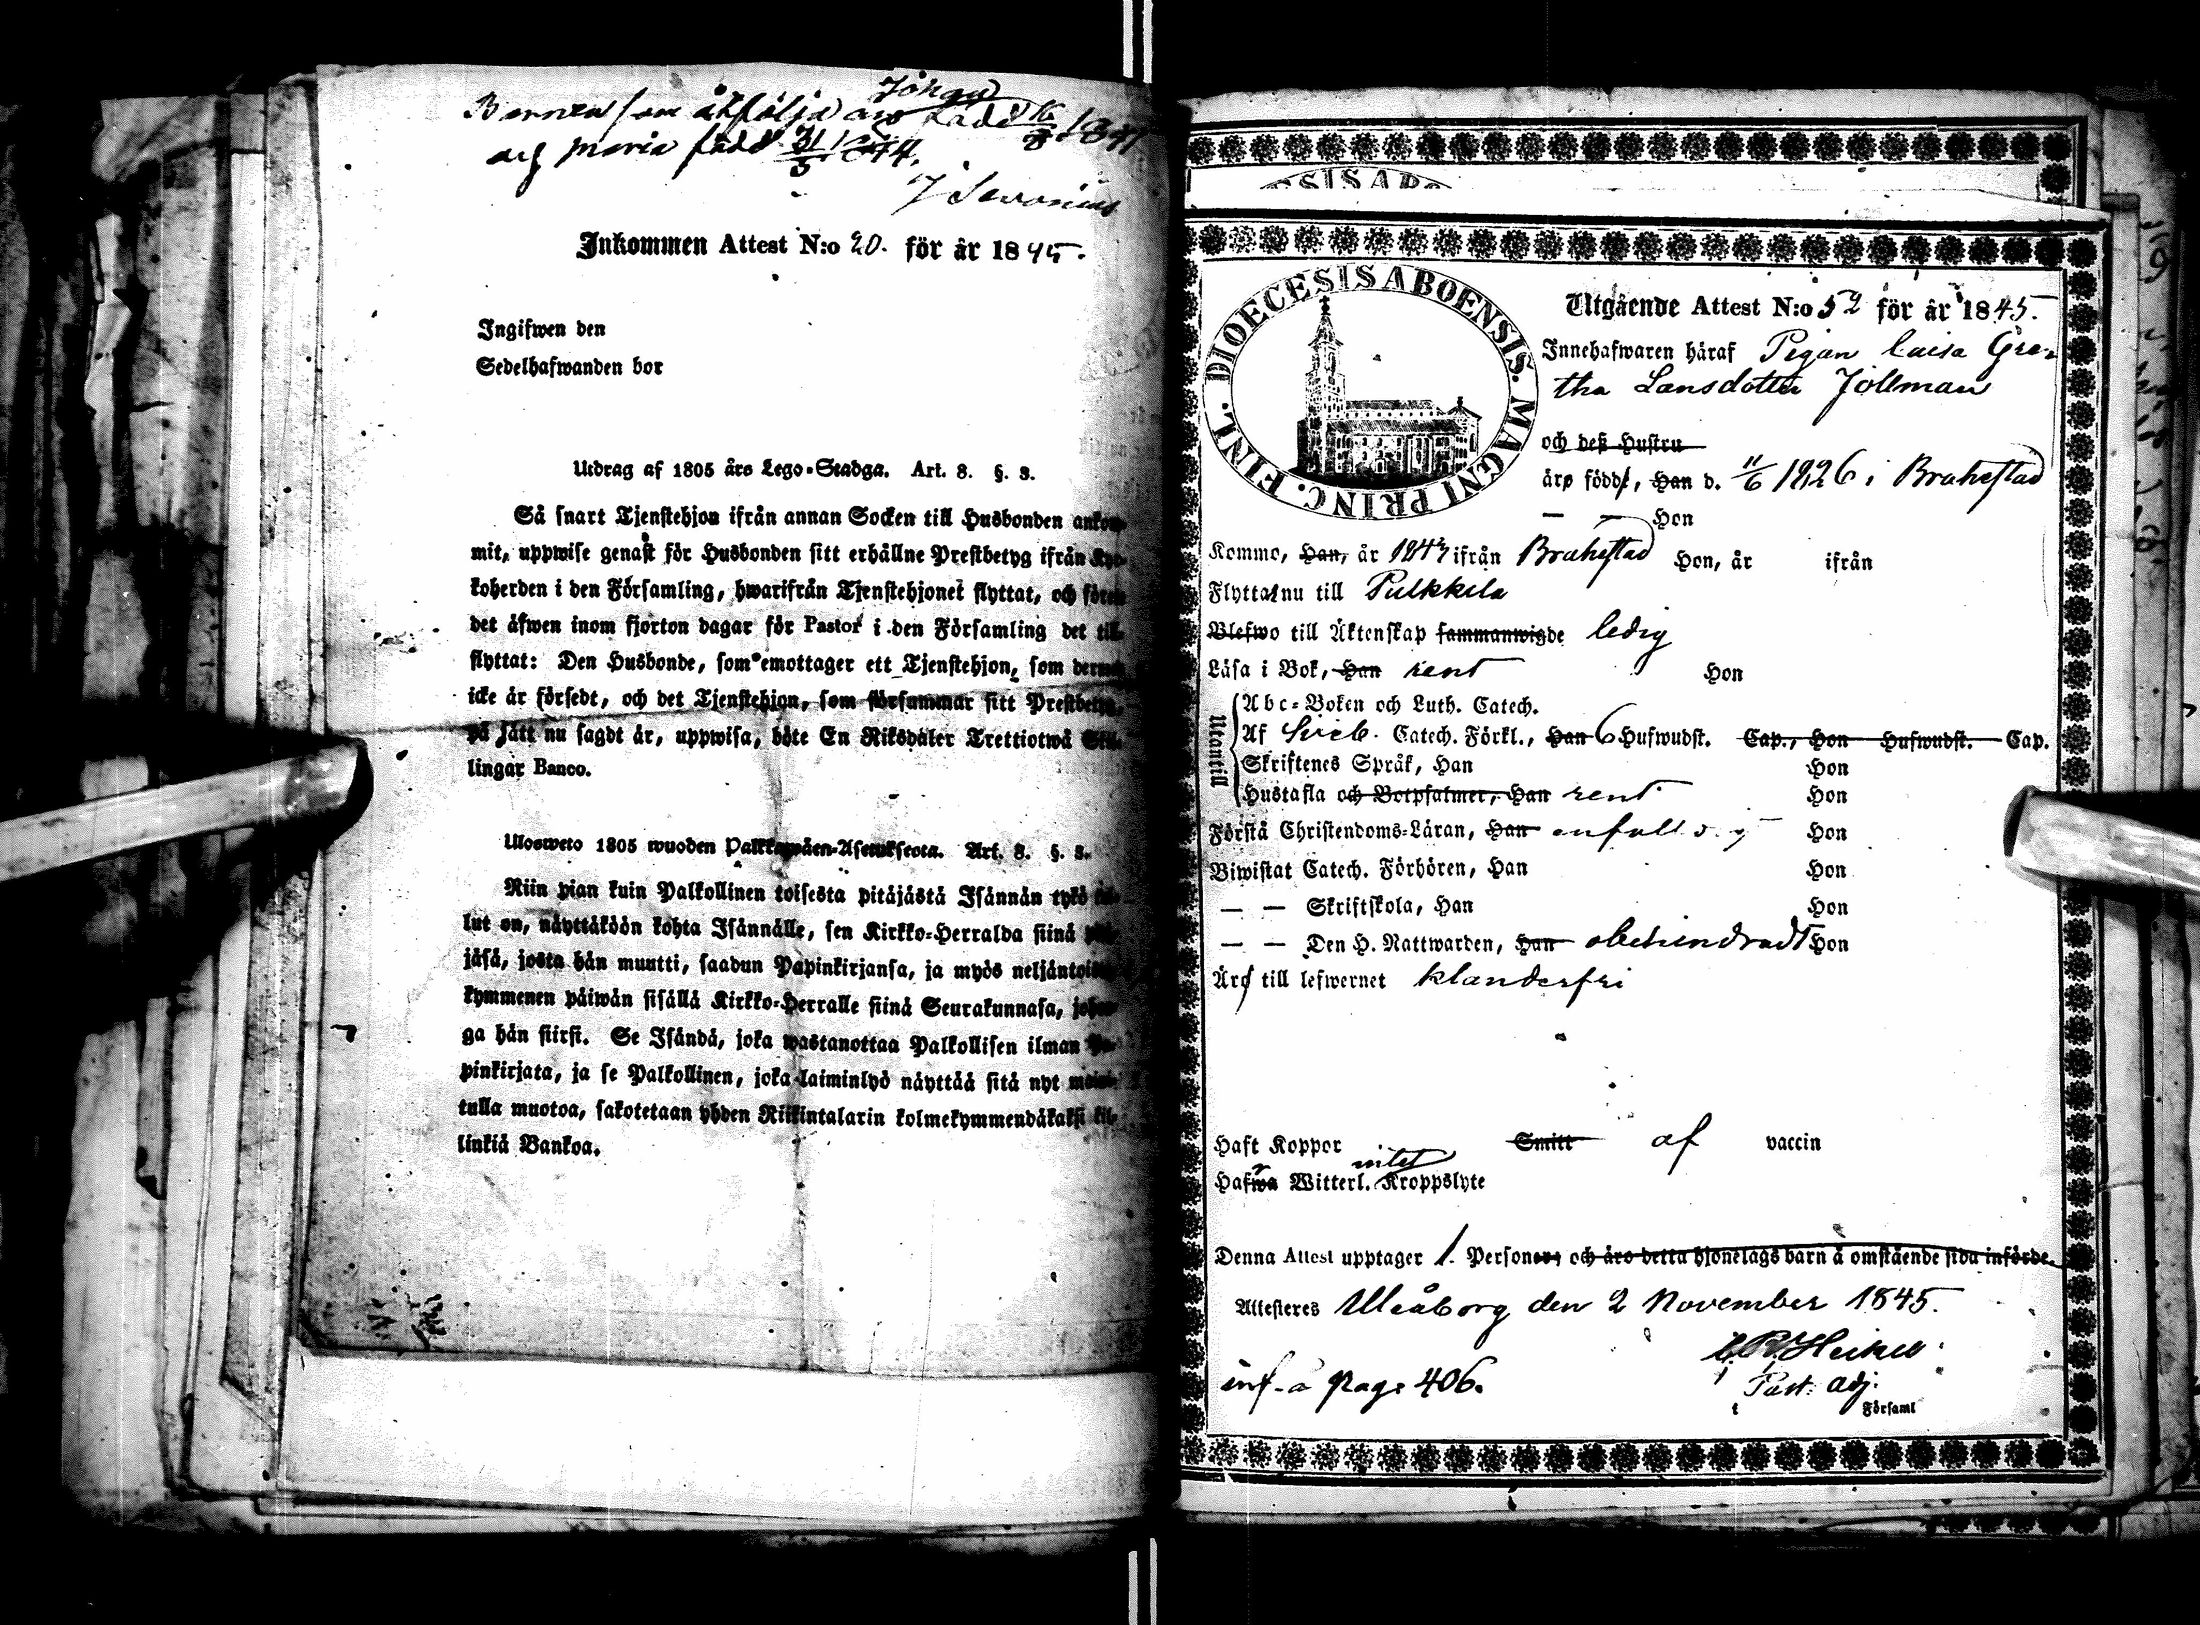 Barnen som åtfölja äro Johan född 16/8 1841
och Maria född 31/5 1844.
J Savonius
Inkommen Attest N:o 20. för år 1845.
Ingifwen den
Sedelhafwanden bor
Utdrag af 1805 års Lego-Stadga. Art. 8. §. 3.
Så snart Tjenstehjon ifrån annan Socken till Husbonden ankom-
mit, uppwise genast för Husbonden sitt erhållne Prestbetyg ifrån Kyr-
koherden i den Församling, hwarifrån Tjenstehjonet flyttat, och
det äfwen inom fjorton dagar för Pastor i den Församling det till-
flyttat: Den Husbonde, som emottager ett Tjenstehjon, som dermed
icke är försedt, och det Tjenstehjon, som försummar sitt Prestbetyg,
på sätt nu sagdt är, uppwisa, böte En Riksdaler Trettiotwå Skil-
lingar Banco.
Ulosweto 1805 wuoden Palkkawäen-Asetuksesta. Art. 8. §. 3.
Niin pian kuin Palkollinen toisesta pitäjästä Isännän tykö tul-
lut on, näyttäköön kohta Isännälle, sen Kirkko-Herralda siinä pitä-
jäsä, josta hän muutti, saadun Papinkirjansa, ja myös neljäntoista
kymmenen päiwän sisällä Kirkko-Herralle siinä Seurakunnasa, johon-
ga hän siirsi. Se Isändä, joka wastanottaa Palkollisen ilman Pa-
pinkirjata, ja se Palkollinen, joka laiminlyö näyttää sitä nyt
tulla muotoa, sakotetaan yhden Riikintalarin kolmekymmendäkaksi kil-
linkiä Bankoa.
ESISABO
DIOECESIS ABOENSIS. MAGNI PRINC. FINL.
Utgående Attest N:o 52 för år 1845.
Innehafwaren häraf Pigan Caisa Gre-
tha Larsdotter Jollman
och dess Hustru
äro född, Han d. 11/6 1826 i Brahestad
— — Hon
Komme, Han, år 1843 ifrån Brahestad Hon, år ifrån
Flytta nu till Pulkkila
Blefwo till Äktenskap sammanwigde ledig
Läsa i Bok, Han rent Hon
Utantill
Abc-Boken och Luth. Catech.
Af Sveb. Catech. Förkl., Han 6 Hufwudst. Cap., Hon Hufwudst. Cap.
Skriftenes Språk, Han Hon
Hustafla och Botpsalmer, Han rent Hon
Förstå Christendoms-Läran, Han enfalldigt Hon
Biwistat Catech. Förhören, Han Hon
— — Skriftskola, Han Hon
— — Den H. Nattwarden, Han obehindradt Hon
Äro till lefwernet klanderfri
Haft Koppor Smitt af vaccin
Hafwa Witterl. intet Kroppslyte
Denna Attest upptager 1. Personer, och äro detta hjonelags barn å omstående sida införde.
Attesteres Uleåborg den 2 November 1845.
Heikel
Past. adj.
i Församl
inf. a pag. 406.